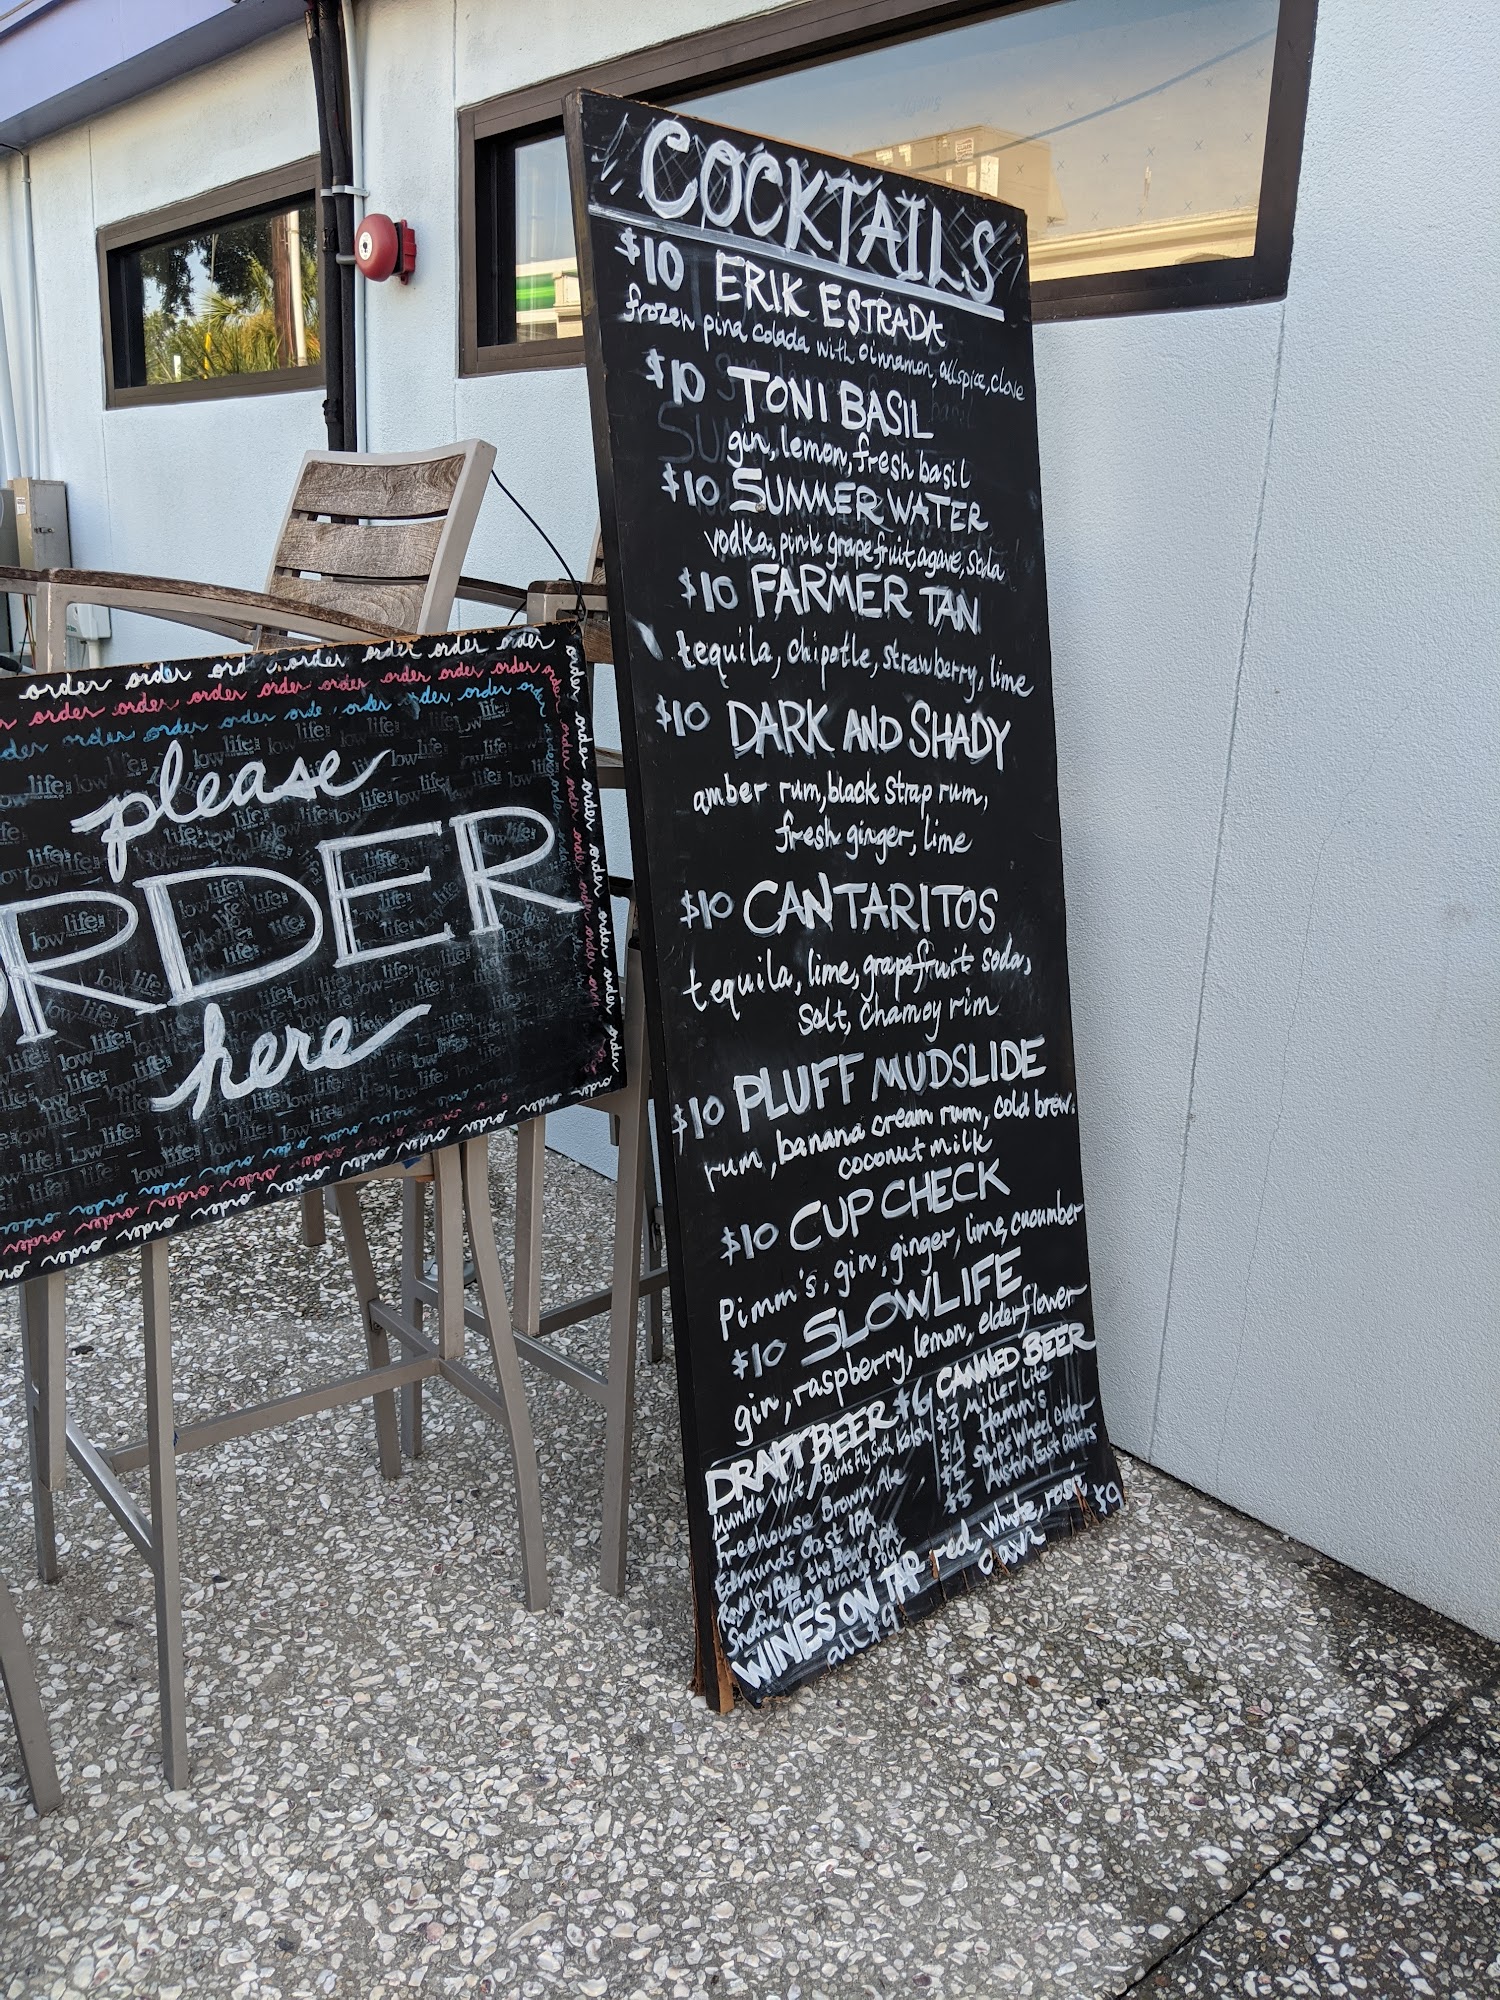 COCKTAILS
$10 ERIK ESTRADA
frozen pina colada with cinnamon, allspice, clove
$10 TONI BASIL
gin, lemon, fresh basil
$10 SUMMER WATER
vodka, pink grapefruit, agave, soda
$10 FARMER TAN
tequila, chipotle, strawberry, lime
$10 DARK AND SHADY
amber rum, black strap rum,
fresh ginger, lime
$10 CANTARITOS
tequila, lime, grapefruit soda,
salt, chamoy rim
$10 PLUFF MUDSLIDE
rum, banana cream rum, cold brew,
coconut milk
$10 CUP CHECK
Pimm's, gin, ginger, lime, cucumber
$10 SLOWLIFE
gin, raspberry, lemon, elderflower
DRAFT BEER $6
Munkle Wit / Birds Fly South Kolsh
Freehouse Brown Ale
Edmund's Oast IPA
Revelry Poke the Bear APA
orange sour
CANNED BEER
$3 Miller Lite
$4 Hamm's
$5 Ships Wheel Cider
$5 Austin East Ciders
WINES ON TAP red, white, rosé $9
all $9 cava
order order order order order order
order order order order order order
order order order order order
please
ORDER
here
low life